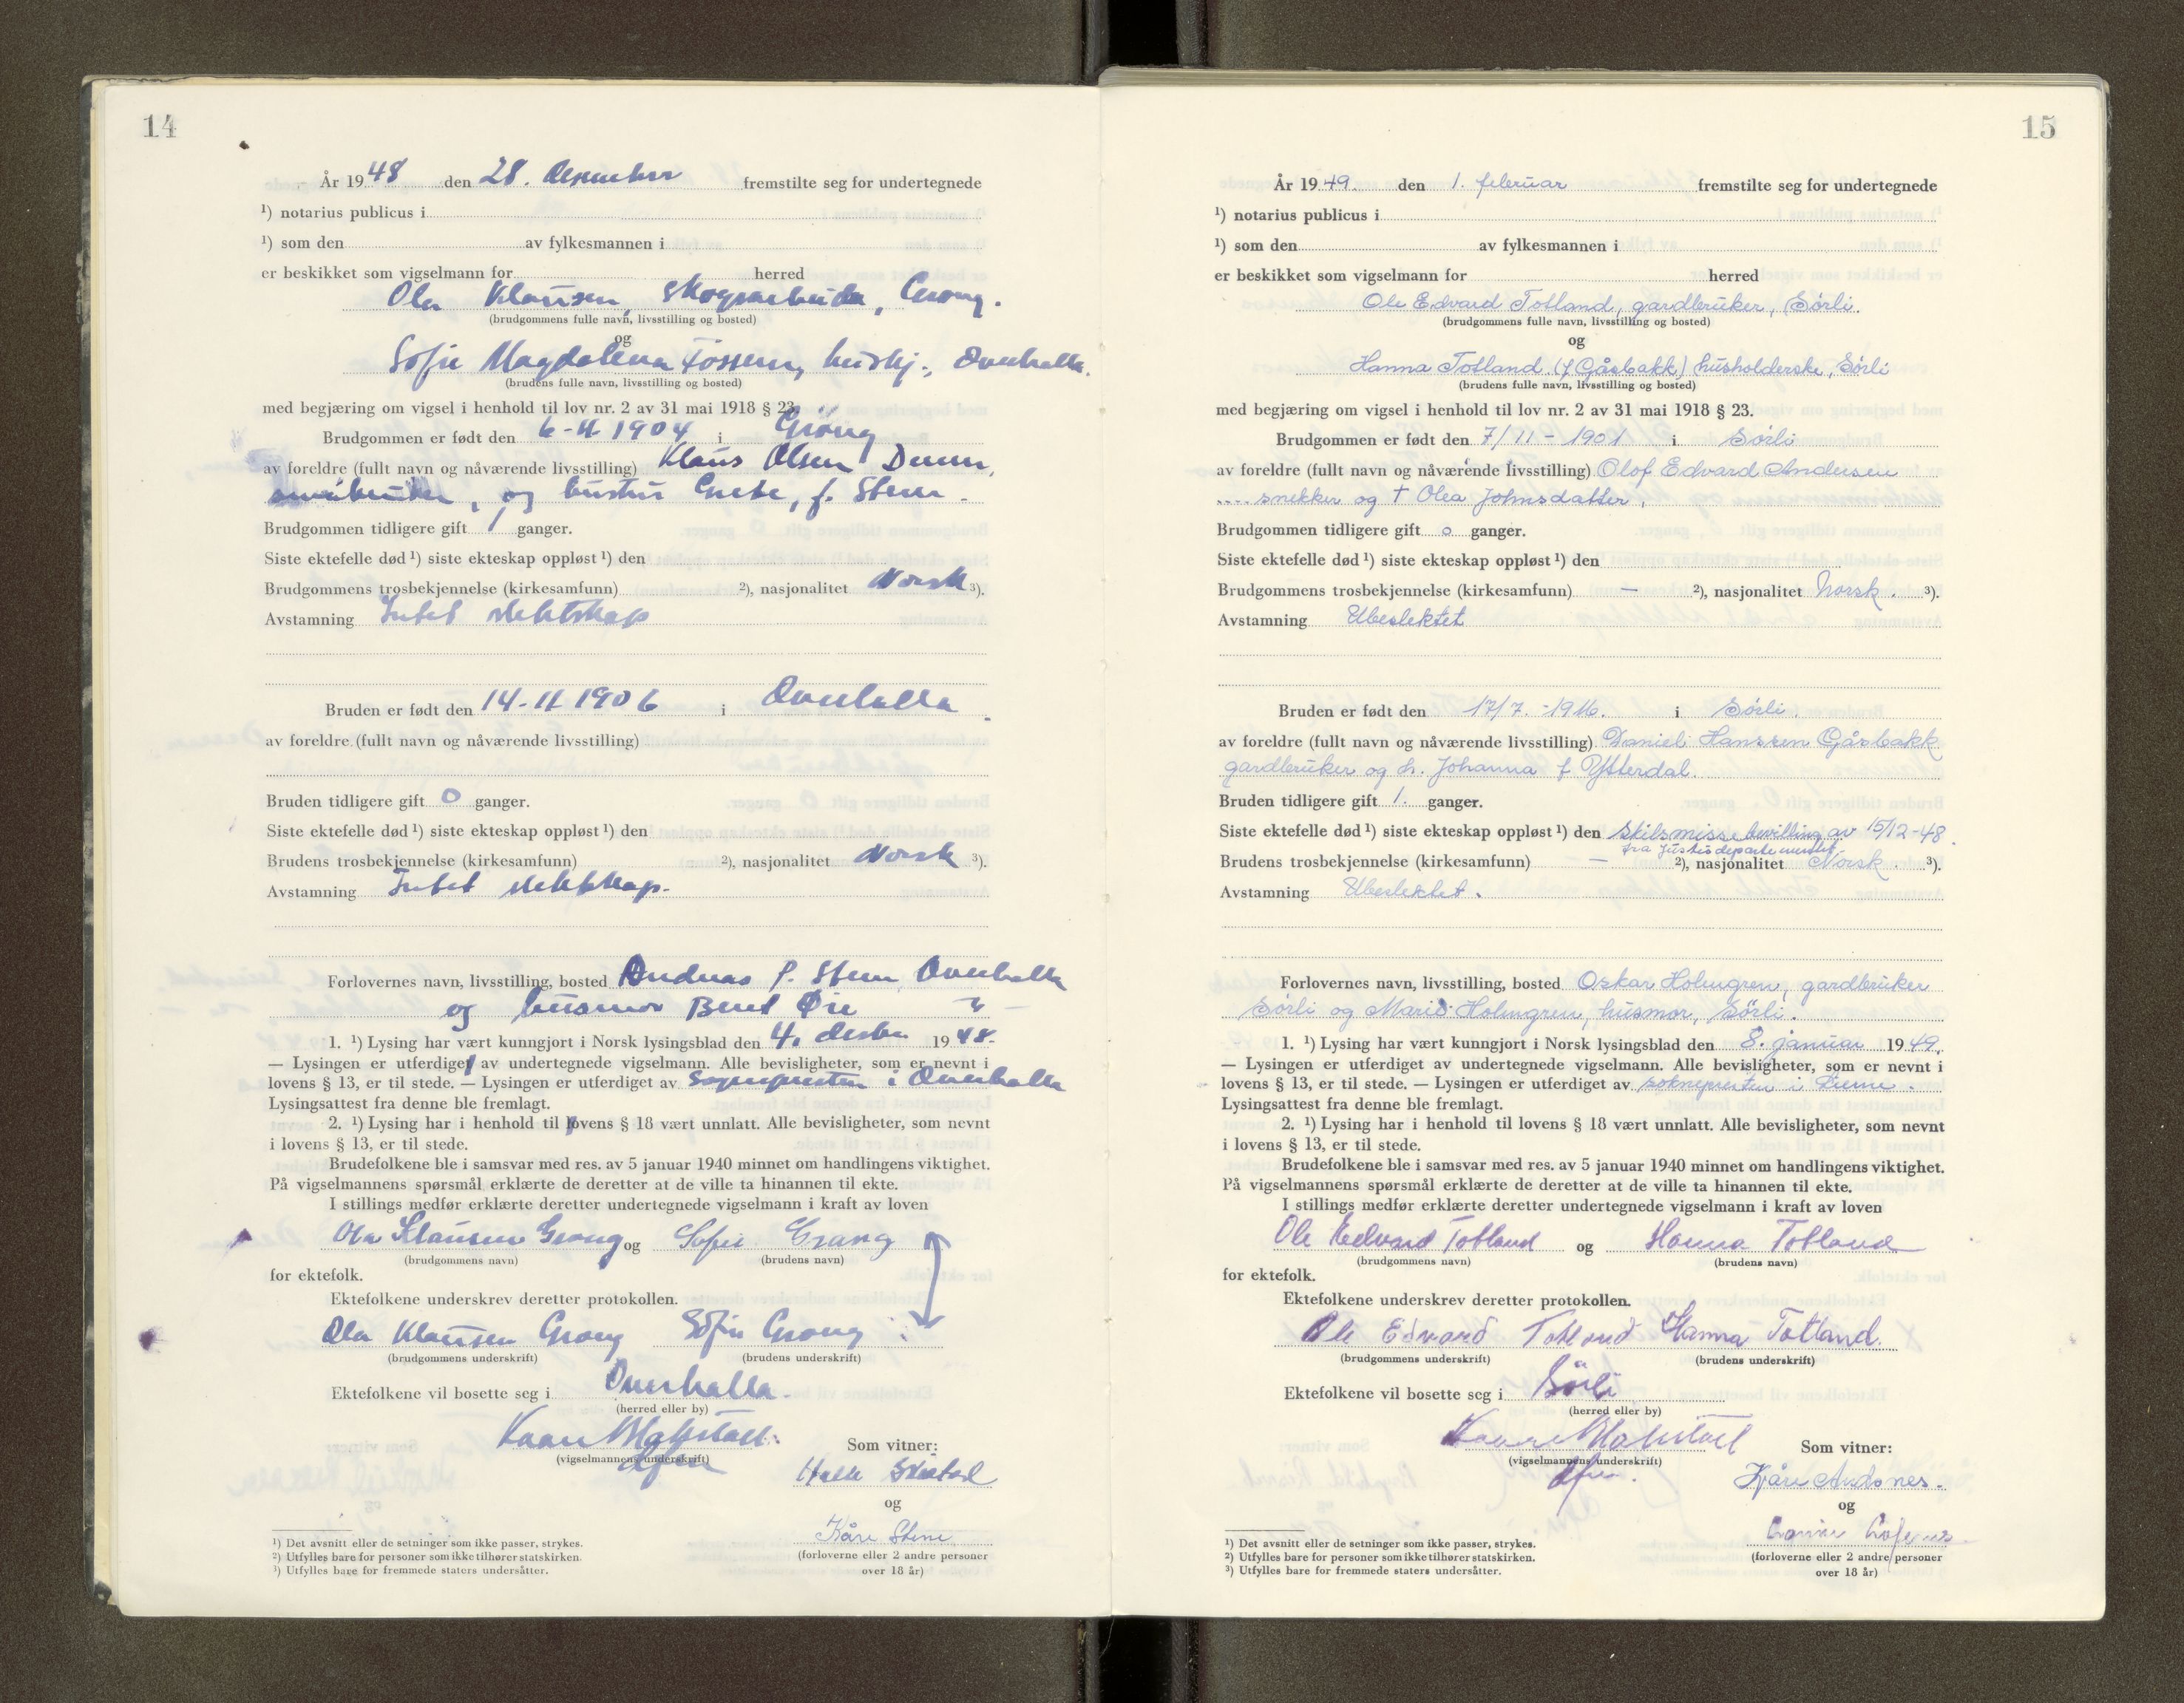 14
År 19 48 den 28. desember fremstilte seg for undertegnede
¹) notarius publicus i
¹) som den av fylkesmannen i
er beskikket som vigselmann for herred
Ola Klausen, skogsarbeider, Grong.
(brudgommens fulle navn, livsstilling og bosted)
og
Sofie Magdalena Fossem, hushj., Overhalla.
(brudens fulle navn, livsstilling og bosted)
med begjæring om vigsel i henhold til lov nr. 2 av 31 mai 1918 § 23.
Brudgommen er født den 6-11 1904 i Grong
av foreldre (fullt navn og nåværende livsstilling) Klaus Olsen Duun,
småbruker, og hustru Grete, f. Steen.
Brudgommen tidligere gift 1 ganger.
Siste ektefelle død ¹) siste ekteskap oppløst ¹) den
Brudgommens trosbekjennelse (kirkesamfunn) ²), nasjonalitet Norsk ³).
Avstamning Intet slektskap
Bruden er født den 14-11 1906 i Overhalla.
av foreldre (fullt navn og nåværende livsstilling)
Bruden tidligere gift 0 ganger.
Siste ektefelle død ¹) siste ekteskap oppløst ¹) den
Brudens trosbekjennelse (kirkesamfunn) ²), nasjonalitet Norsk ³).
Avstamning Intet slektskap.
Forlovernes navn, livsstilling, bosted Andreas P. Steen, Overhalla
og husmor Beret Øie " —
1. ¹) Lysing har vært kunngjort i Norsk lysingsblad den 4. desbr 19 48.
— Lysingen er utferdiget av undertegnede vigselmann. Alle bevisligheter, som er nevnt i
lovens § 13, er til stede. — Lysingen er utferdiget av Sognepresten i Overhalla
Lysingsattest fra denne ble fremlagt.
2. ¹) Lysing har i henhold til lovens § 18 vært unnlatt. Alle bevisligheter, som nevnt
i lovens § 13, er til stede.
Brudefolkene ble i samsvar med res. av 5 januar 1940 minnet om handlingens viktighet.
På vigselmannens spørsmål erklærte de deretter at de ville ta hinannen til ekte.
I stillings medfør erklærte deretter undertegnede vigselmann i kraft av loven
Ola Klausen Grong og Sofie Grong
(brudgommens navn) (brudens navn)
for ektefolk.
Ektefolkene underskrev deretter protokollen.
Ola Klausen Grong Sofie Grong
(brudgommens underskrift) (brudens underskrift)
Ektefolkene vil bosette seg i Overhalla.
(herred eller by)
(vigselmannens underskrift)
Som vitner:
og
Kåre Stene
(forloverne eller 2 andre personer
over 18 år)
¹) Det avsnitt eller de setninger som ikke passer, strykes.
²) Utfylles bare for personer som ikke tilhører statskirken.
³) Utfylles bare for fremmede staters undersåtter.
15
År 19 49. den 1. februar fremstilte seg for undertegnede
¹) notarius publicus i
¹) som den av fylkesmannen i
er beskikket som vigselmann for herred
Ole Edvard Totland, gardbruker, Sørli.
(brudgommens fulle navn, livsstilling og bosted)
og
Hanna Totland (f Gåsbakk) husholderske, Sørli
(brudens fulle navn, livsstilling og bosted)
med begjæring om vigsel i henhold til lov nr. 2 av 31 mai 1918 § 23.
Brudgommen er født den 7/11 - 1901 i Sørli
av foreldre (fullt navn og nåværende livsstilling) Olof Edvard Andersen
.... snekker og † Olea Johnsdatter,
Brudgommen tidligere gift 0 ganger.
Siste ektefelle død ¹) siste ekteskap oppløst ¹) den
Brudgommens trosbekjennelse (kirkesamfunn) — ²), nasjonalitet Norsk. ³).
Avstamning Ubeslektet
Bruden er født den 17/7. -1916. i Sørli.
av foreldre (fullt navn og nåværende livsstilling) Daniel Hanssen Gåsbakk
gardbruker og h. Johanna f Ytterdal.
Bruden tidligere gift 1. ganger.
Siste ektefelle død ¹) siste ekteskap oppløst ¹) den Skilsmisse bevilling av 15/12-48.
fra Justisdepartementet
Brudens trosbekjennelse (kirkesamfunn) — ²), nasjonalitet Norsk. ³).
Avstamning Ubeslektet.
Forlovernes navn, livsstilling, bosted Oskar Holmgren, gardbruker
Sørli og Marie Holmgren, husmor, Sørli.
1. ¹) Lysing har vært kunngjort i Norsk lysingsblad den 8. januar 19 49.
— Lysingen er utferdiget av undertegnede vigselmann. Alle bevisligheter, som er nevnt i
lovens § 13, er til stede. — Lysingen er utferdiget av soknepresten i Lierne.
Lysingsattest fra denne ble fremlagt.
2. ¹) Lysing har i henhold til lovens § 18 vært unnlatt. Alle bevisligheter, som nevnt
i lovens § 13, er til stede.
Brudefolkene ble i samsvar med res. av 5 januar 1940 minnet om handlingens viktighet.
På vigselmannens spørsmål erklærte de deretter at de ville ta hinannen til ekte.
I stillings medfør erklærte deretter undertegnede vigselmann i kraft av loven
Ole Edvard Totland og Hanna Totland
(brudgommens navn) (brudens navn)
for ektefolk.
Ektefolkene underskrev deretter protokollen.
Ole Edvard Totland Hanna Totland.
(brudgommens underskrift) (brudens underskrift)
Ektefolkene vil bosette seg i Sørli
(herred eller by)
(vigselmannens underskrift)
Som vitner:
Kåre Andsnes.
og
(forloverne eller 2 andre personer
over 18 år)
¹) Det avsnitt eller de setninger som ikke passer, strykes.
²) Utfylles bare for personer som ikke tilhører statskirken.
³) Utfylles bare for fremmede staters undersåtter.